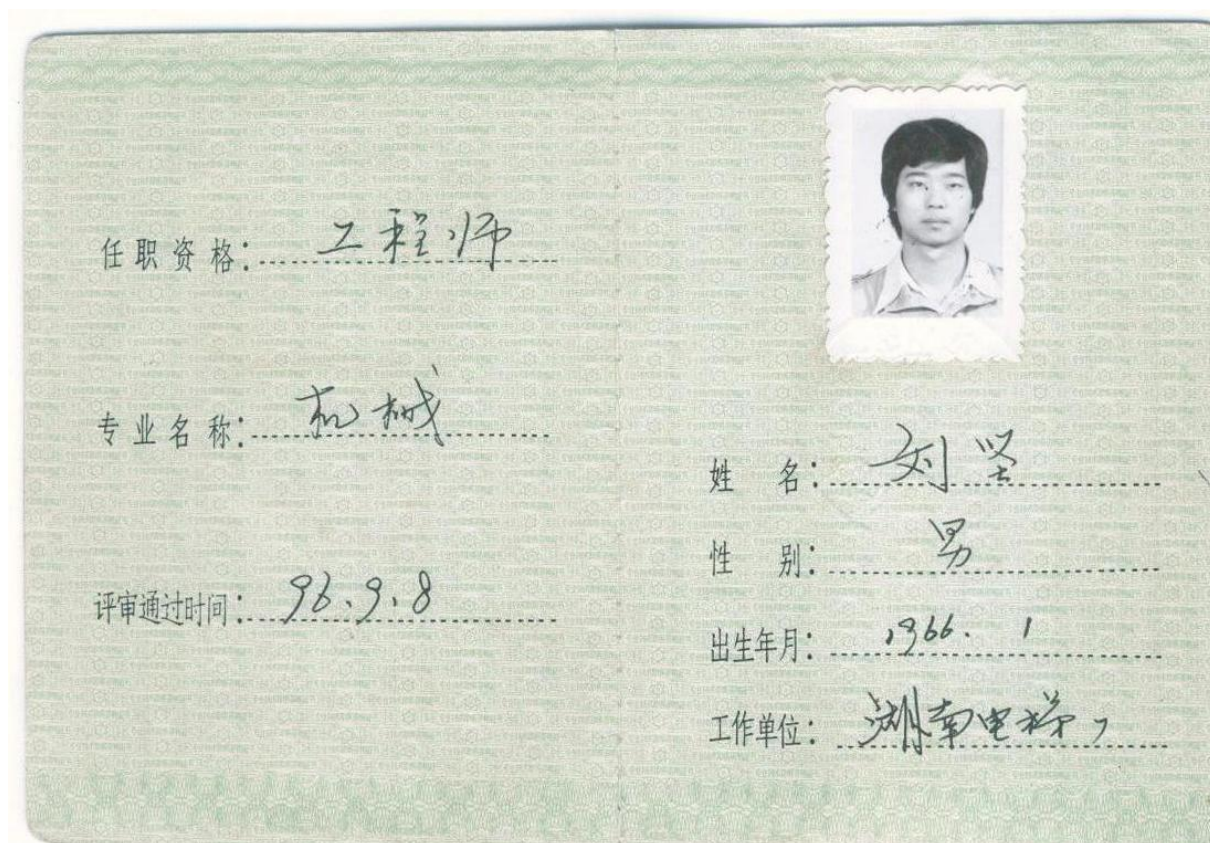 任职资格：工程师
专业名称：机械
评审通过时间：96.9.8
姓名：刘坚
性别：男
出生年月：1966. 1
工作单位：湖南电梯厂